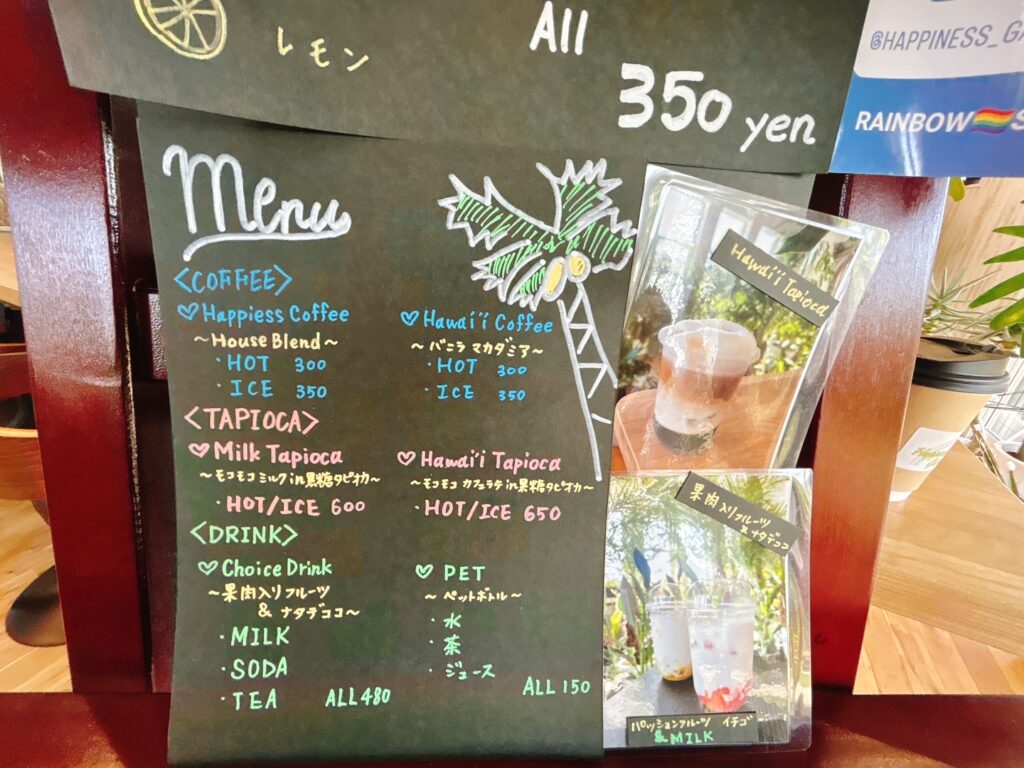 レモン
All
350 yen
@HAPPINESS_GA
RAINBOW🏳️‍🌈S
Menu
<COFFEE>
♡Happiess Coffee
~House Blend~
・HOT 300
・ICE 350
♡Hawai'i Coffee
~バニラ マカダミア~
・HOT 300
・ICE 350
<TAPIOCA>
♡Milk Tapioca
~モコモコミルクin黒糖タピオカ~
・HOT/ICE 600
♡Hawai'i Tapioca
~モコモコ カフェラテin黒糖タピオカ~
・HOT/ICE 650
<DRINK>
♡Choice Drink
~果肉入りフルーツ
& ナタデココ~
・MILK
・SODA
・TEA ALL480
♡ PET
~ペットボトル~
・水
・茶
・ジュース
ALL 150
Hawai'i Tapioca
果肉入りフルーツ
&ナタデココ
パッションフルーツ イチゴ
&MILK